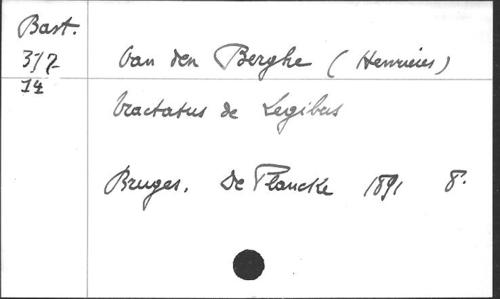 Bast.
317
14
Van den Berghe (Henricus)
tractatus de Legibus
Bruges. De Plancke 1891 8°.